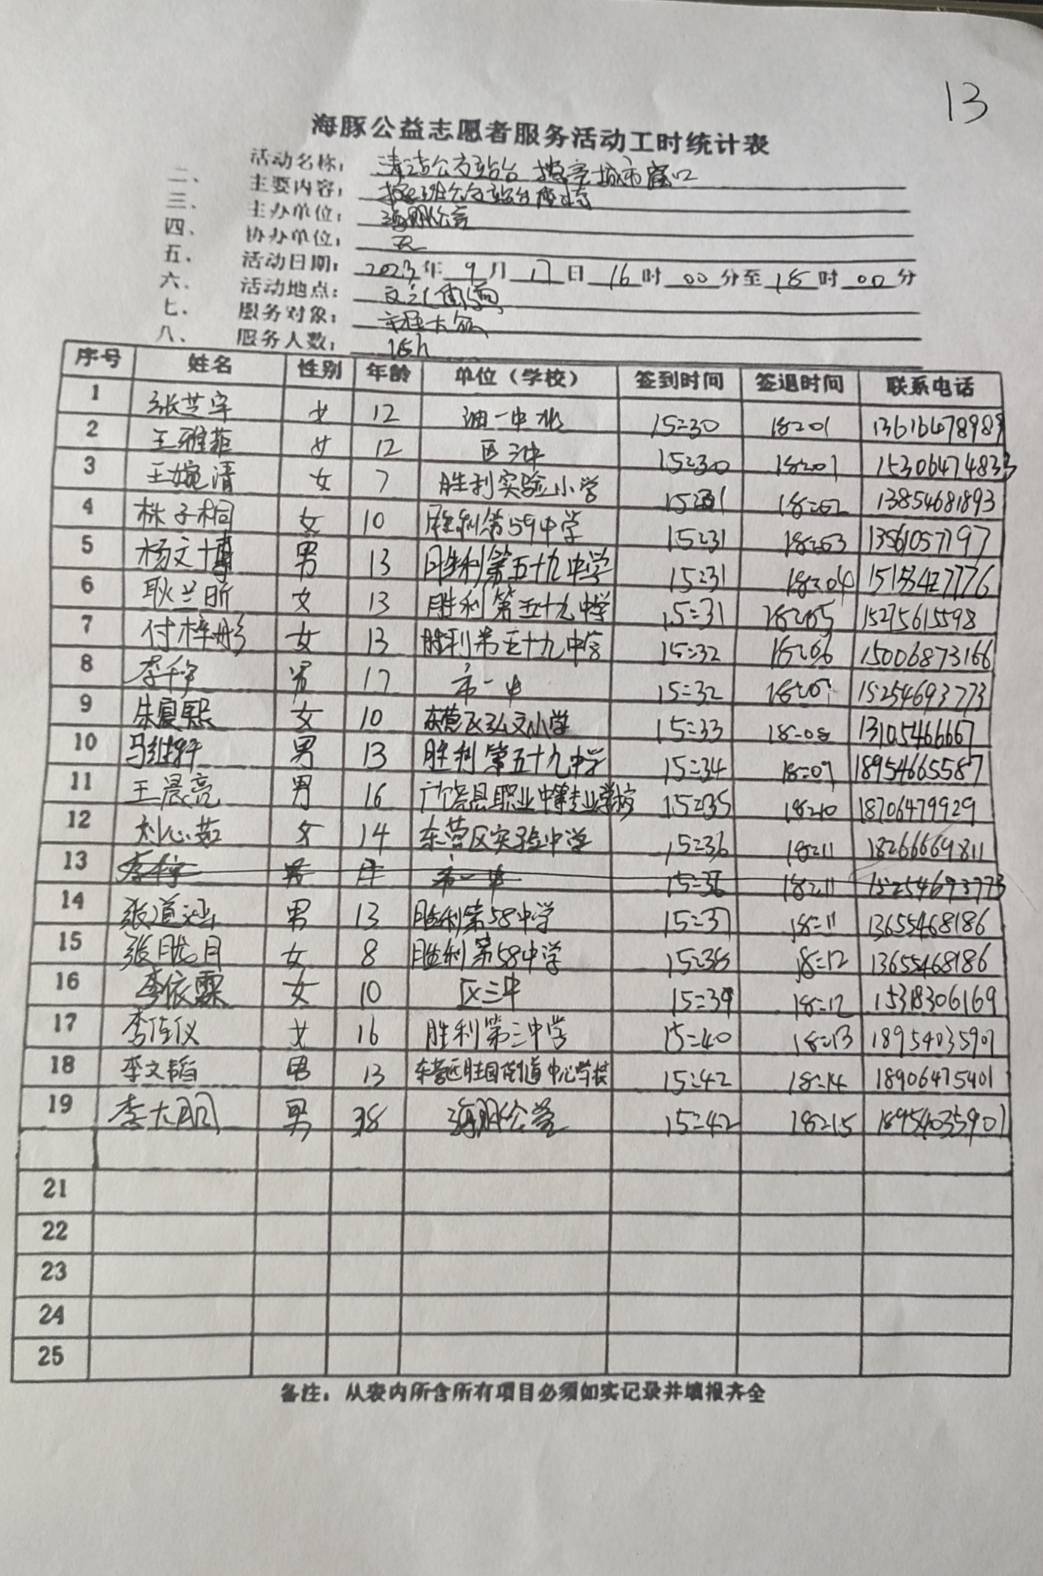 13
海豚公益志愿者服务活动工时统计表
活动名称： 清洁公交站台 擦亮城市窗口
二、 主要内容：
三、 主办单位： 海豚公益
四、 协办单位： 无
五、 活动日期： 2023年 9月 17日 16时 00分至 18时 00分
六、 活动地点：
七、 服务对象：
八、 服务人数： 18人
序号 姓名 性别 年龄 单位（学校） 签到时间 签退时间 联系电话
1 张芝宇 女 12 油一中北 15:30 18:01
2 王雅茹 女 12 15:30 18:01 15306474833
3 王婉清 女 7 胜利实验小学 18:02 13854681893
4 林子桐 女 10 胜利第59中学 15:31 18:03 13561057197
5 杨文博 男 13 胜利第五十九中学 15:31 18:04 15153427776
6 耿兰昕 女 13 胜利第五十九中学 15:31 18:05 15275615598
7 付梓彤 女 13 胜利第五十九中学 15:32 18:06 15006873166
8 男 17 市一中 15:32 15254693773
9 朱夏熙 女 10 东营区弘文小学 15:33 18:08 13105466667
10 马继轩 男 13 胜利第五十九中学 15:34 18:09 18954665587
11 王晨亮 男 16 广饶县职业中等专业学校 15:35 18:10 18706479929
12 刘心茹 女 14 东营区实验中学 15:36 18:11 18266669811
13 男 市一中 15:36 18:11 15254693773
14 张道涵 男 13 胜利第58中学 15:37 18:11 13655468186
15 张胧月 女 8 胜利第58中学 15:38 18:12 13655468186
16 李依霖 女 10 区三中 15:39 18:12 15318306169
17 李佳仪 女 16 胜利第三中学 15:40 18:13 18954035901
18 李文韬 男 13 东营区胜园街道中心学校 15:42 18:14 18906475401
19 李大鹏 男 38 海豚公益 15:42 18:15 18954035901
21
22
23
24
25
备注：从表内所含所有项目必须如实记录并填报齐全